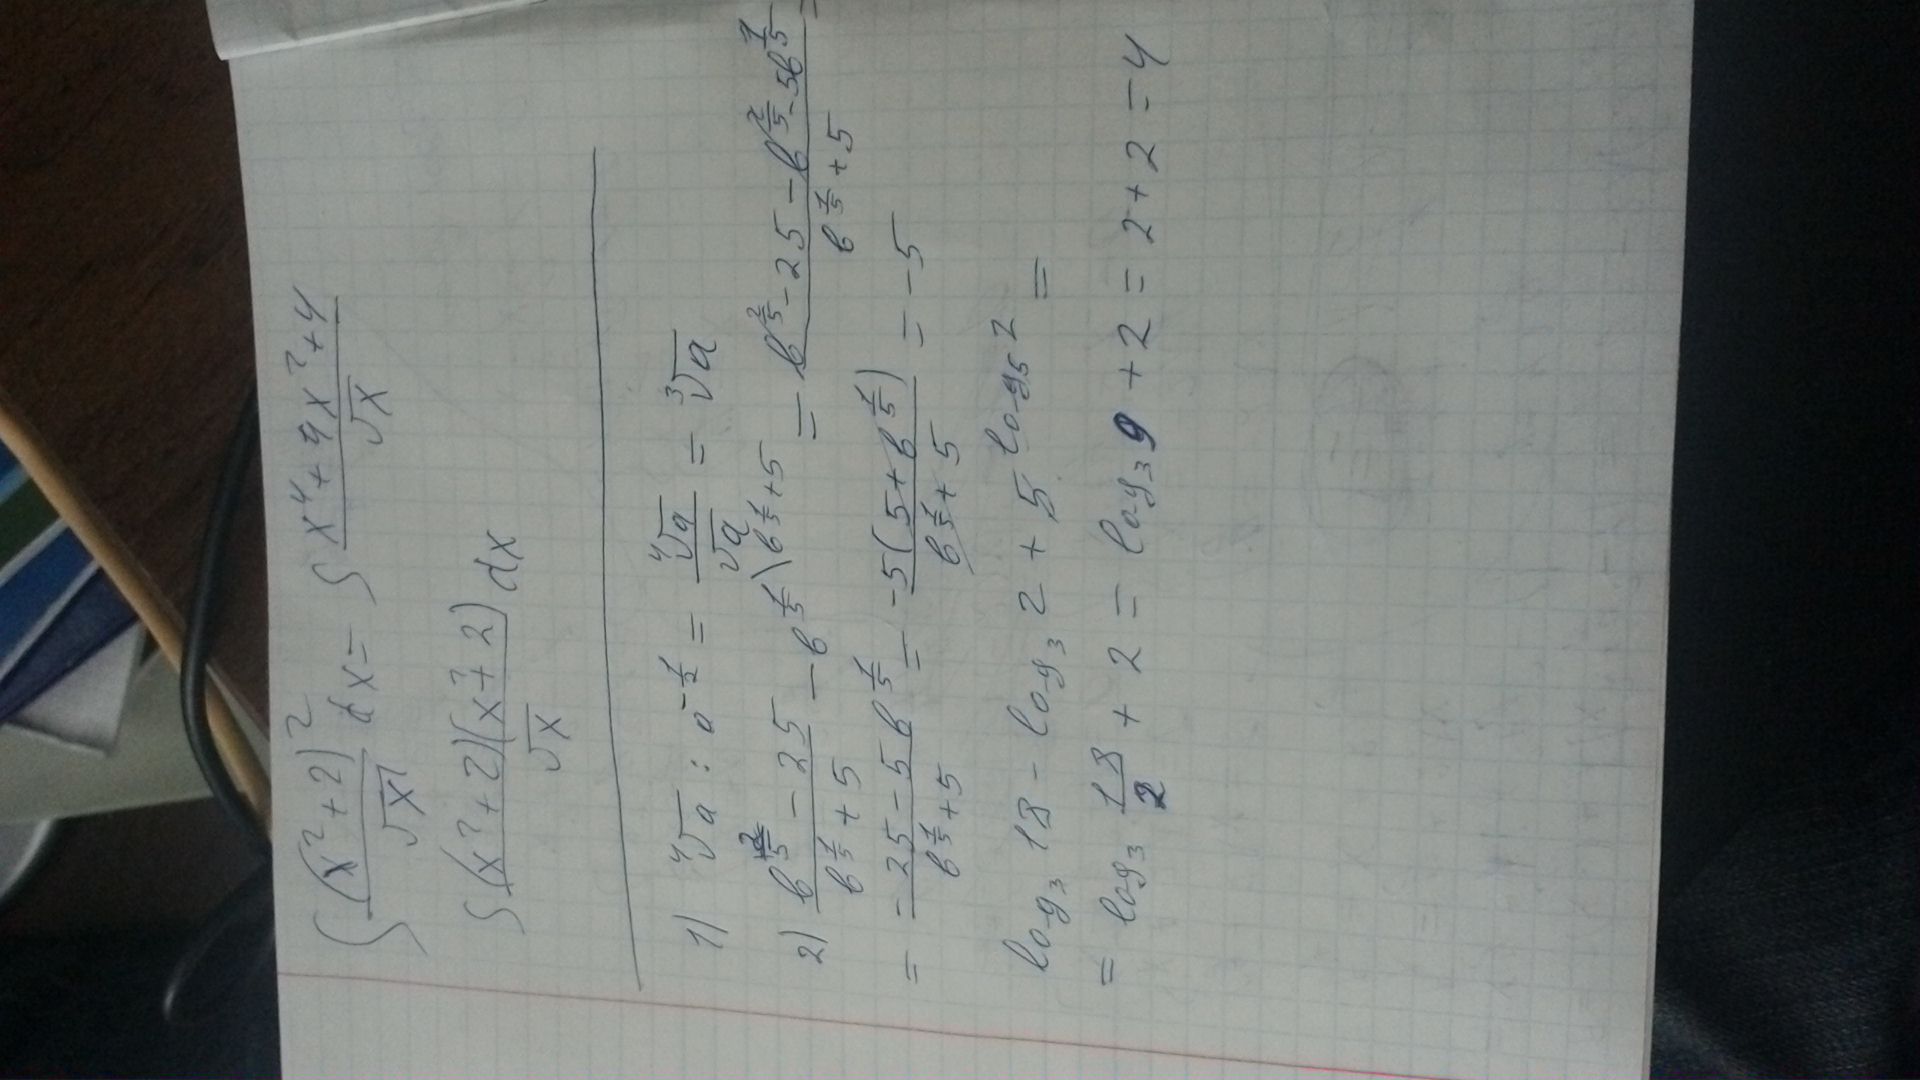 ∫ (x²+2)²/√x dx = ∫ (x⁴+4x²+4)/√x
∫ (x²+2)(x²+2)/√x dx
1) ⁴√a : a^(-1/2) = ⁴√a/√a = ³√a
2) (b^(2/5) - 25)/(b^(1/5) + 5) - b^(1/5) \ b^(1/5)+5 = (b^(2/5) - 25 - b^(2/5) - 5b^(1/5))/(b^(1/5) + 5) =
= (-25 - 5b^(1/5))/(b^(1/5) + 5) = -5(5 + b^(1/5))/(b^(1/5) + 5) = -5
log₃ 18 - log₃ 2 + 5^(log₅ 2) =
= log₃ 18/2 + 2 = log₃ 9 + 2 = 2 + 2 = 4